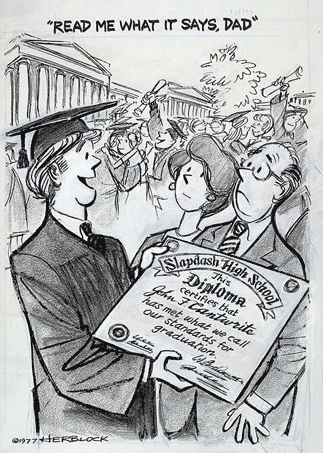 "READ ME WHAT IT SAYS, DAD"
Slapdash High School
This
Diploma
certifies that
John J. Cantwrite
has met what we call
our standards for
graduation.
©1977 HERBLOCK